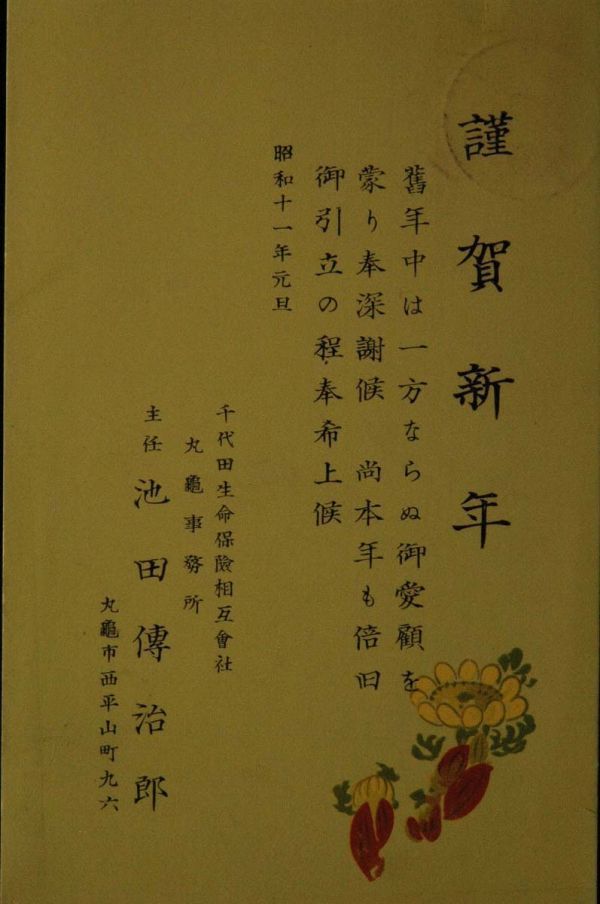 謹賀新年
舊年中は一方ならぬ御愛顧を
蒙り奉深謝候　尚本年も倍旧
御引立の程奉希上候
昭和十一年元旦
千代田生命保險相互會社
丸龜事務所
主任 池田傳治郎
丸龜市西平山町九六